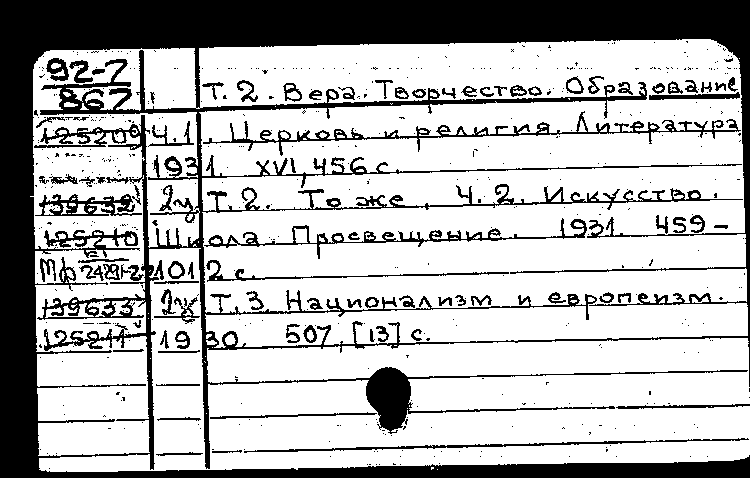 92-7
867 Т. 2. Вера. Творчество. Образование
125209 Ч.1. Церковь и религия. Литература
1931. XVI, 456 с.
139632 2ц Т. 2. То же. Ч. 2. Искусство.
125210 Школа. Просвещение. 1931. 459-
Мф 1012 с.
139633 Т. 3. Национализм и европеизм.
125211 1930. 507, [13] с.